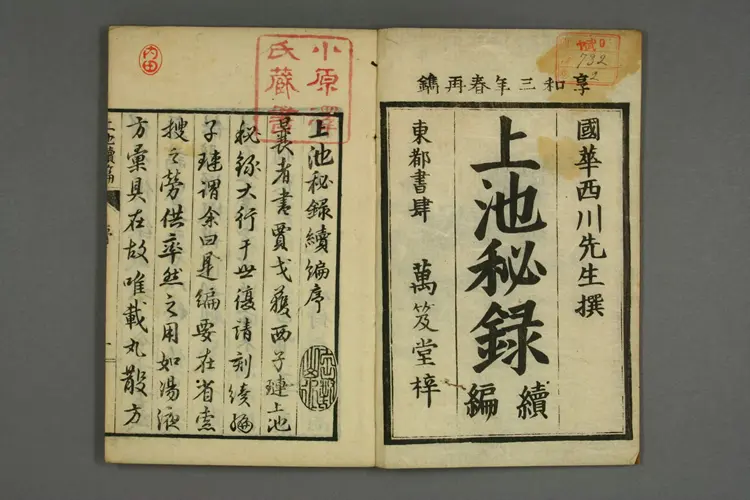 享和三年春再鐫
國華西川先生撰
上池秘録
續編
東都書肆 萬笈堂梓
732
2
小原
氏蔵書
内田
上池秘録續編序
曩者書賈戈獲西子璉上池
秘録大行于世復請刻續編
子璉謂余曰是編要在省索
搜之勞供率然之用如湯液
方彙具在故唯載丸散方